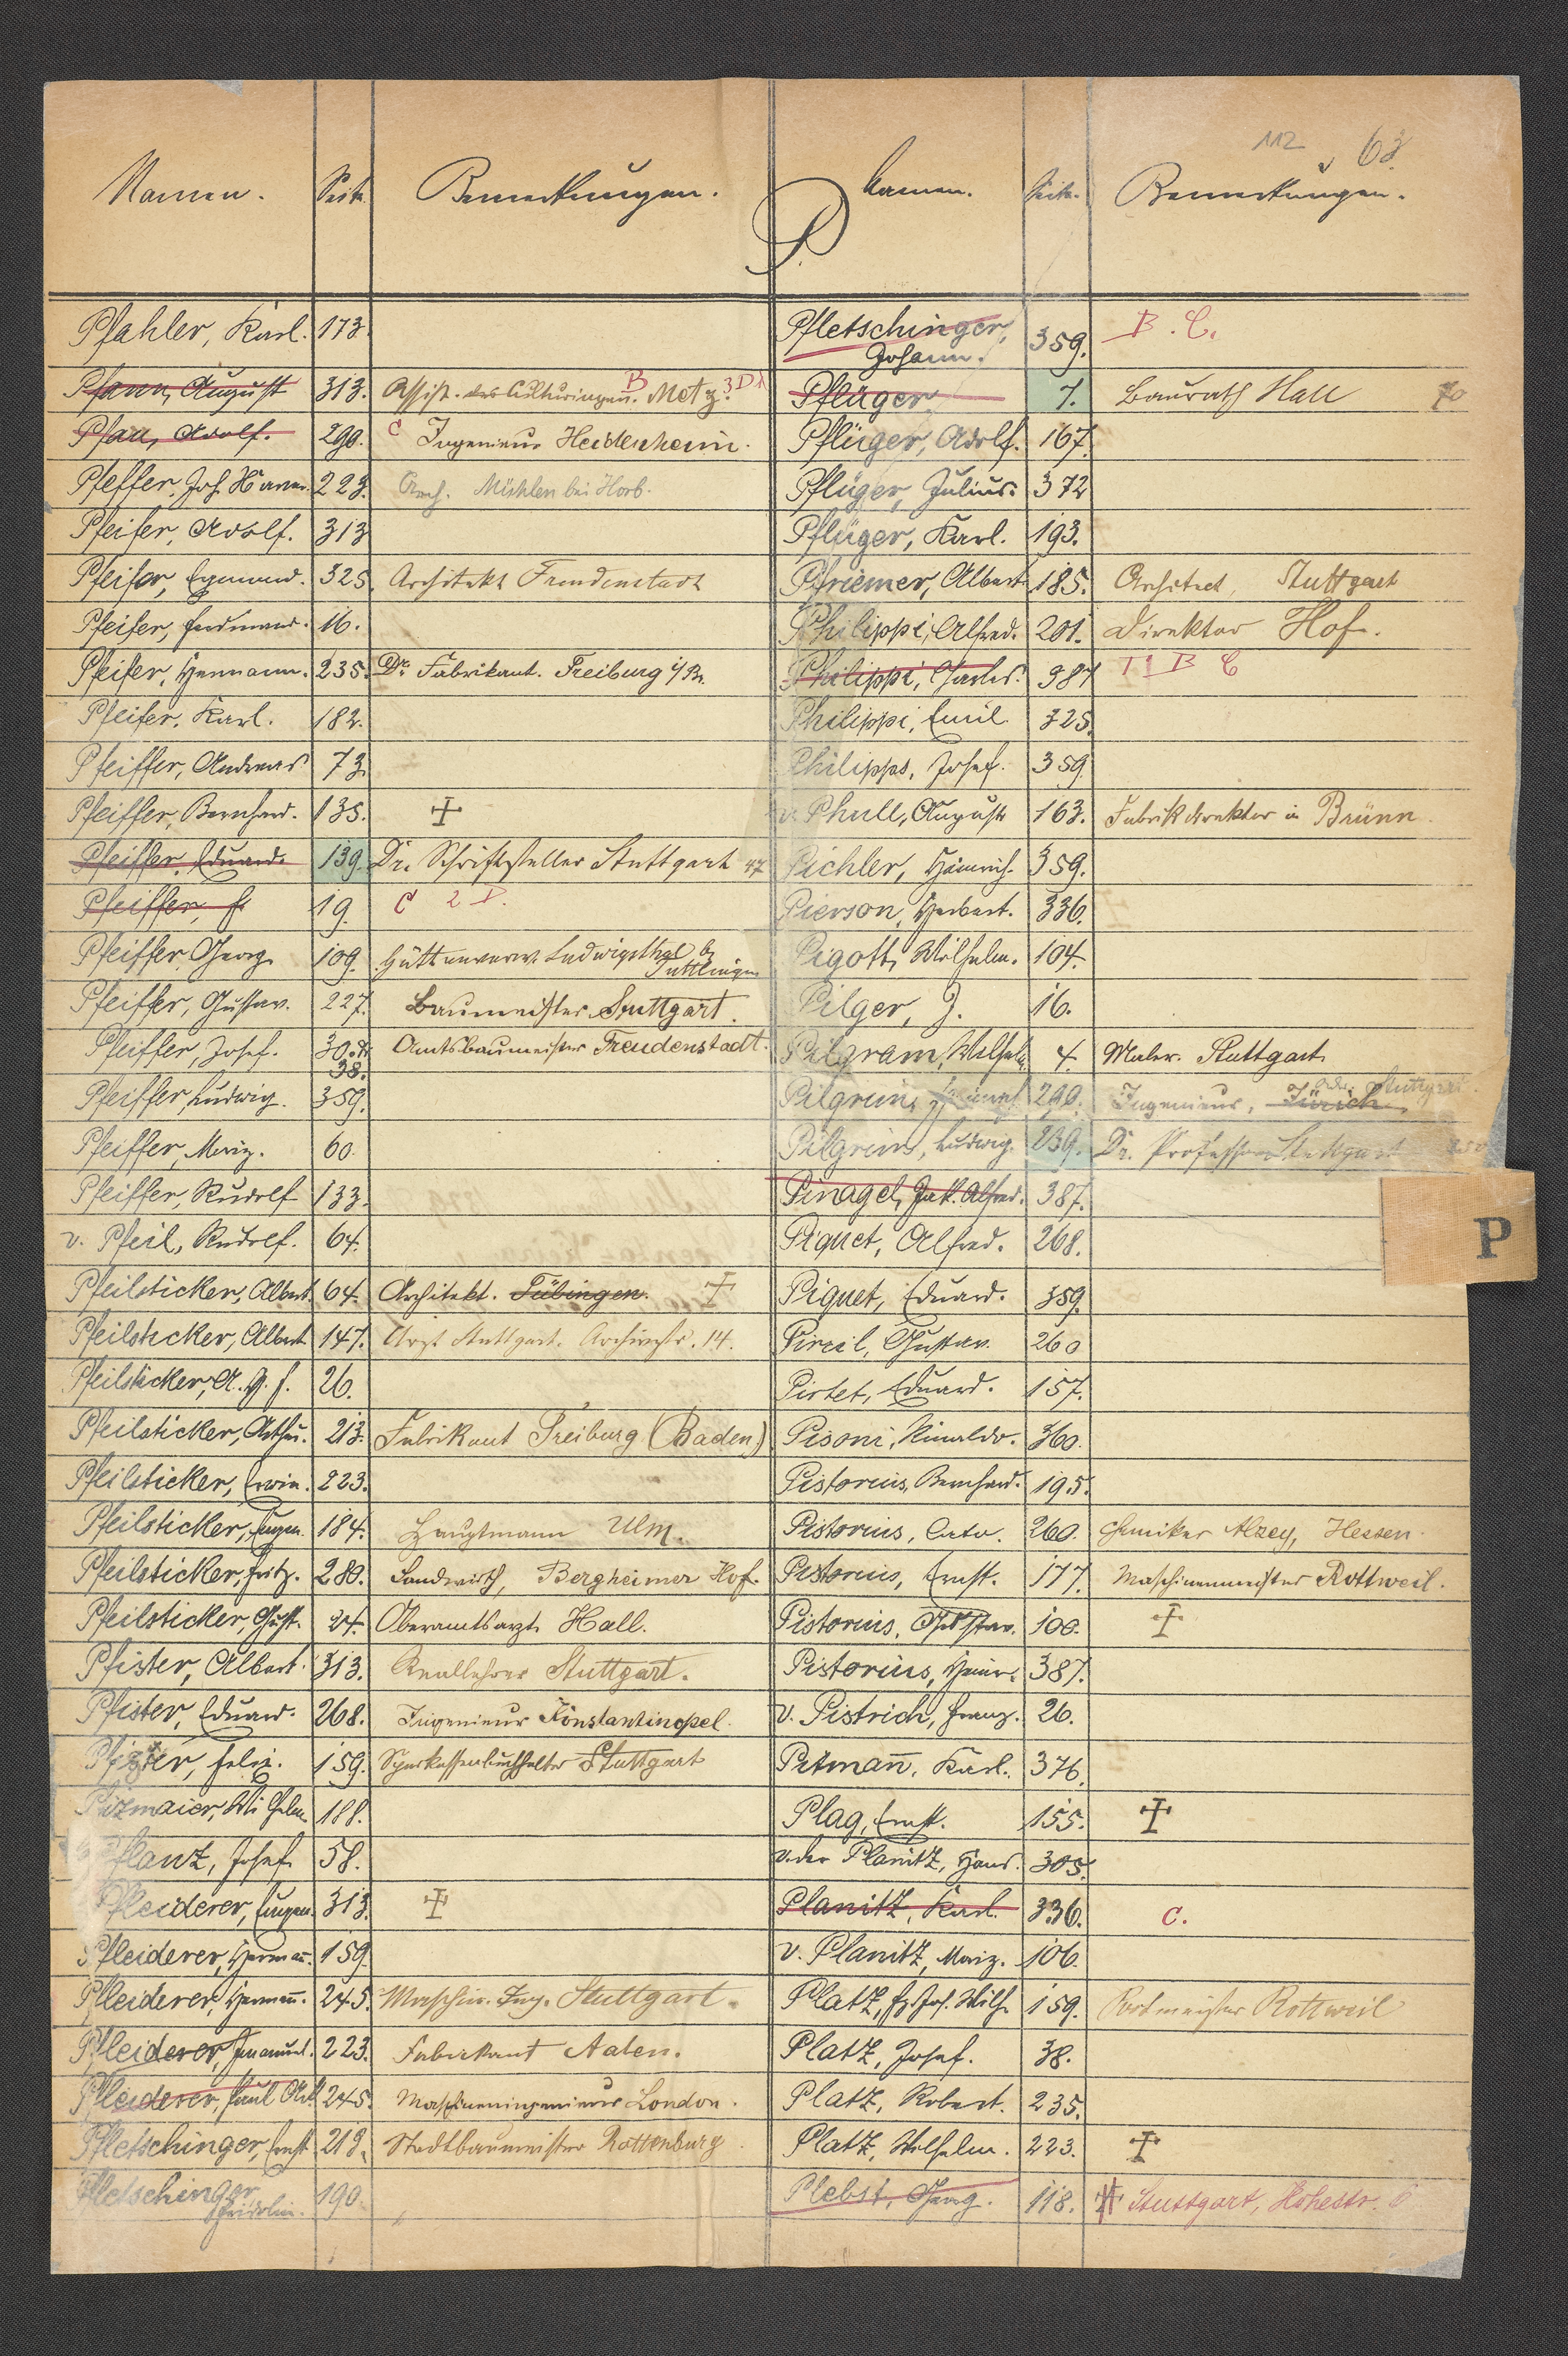 112 63.
Namen. Seite. Bemerkungen.
Namen. Seite. Bemerkungen.
P.
Pfahler, Karl. 173.
Pfann, August 313. Assist. des Culturingen. B Metz. 3 D 1
Pfau, Adolf. 290. C Ingenieur Heidenheim.
Pfeffer, Joh. Herm. 223. Arch. Mühlen bei Horb.
Pfeifer, Adolf. 313
Pfeifer, Egmund. 325. Architekt Freudenstadt
Pfeifer, Ferdinand. 16.
Pfeifer, Hermann. 235. Dr. Fabrikant. Freiburg i/Br.
Pfeifer, Karl. 182.
Pfeiffer, Andreas 73.
Pfeiffer, Bernhard. 135. ☩
Pfeiffer, Eduard. 139. Dr. Schriftsteller Stuttgart 47
Pfeiffer, F. 19. C 2 D.
Pfeiffer, Georg. 109. Hüttenverw. Ludwigsthal b.
Tuttlingen
Pfeiffer, Gustav. 227. Baumeister Stuttgart.
Pfeiffer, Josef. 30. & Amtsbaumeister Freudenstadt.
38.
Pfeiffer, Ludwig. 359.
Pfeiffer, Moriz. 60.
Pfeiffer, Rudolf 133.
v. Pfeil, Rudolf. 64.
Pfeilsticker, Albert. 64. Architekt. Tübingen. ☩
Pfeilsticker, Albert 147. Arzt Stuttgart. Archivstr. 14.
Pfeilsticker, A. G. F. 26.
Pfeilsticker, Arthur. 213. Fabrikant Freiburg (Baden)
Pfeilsticker, Erwin. 223.
Pfeilsticker, Eugen. 184. Hauptmann Ulm.
Pfeilsticker, Fritz. 280. Landwirth, Bergheimer Hof.
Pfeilsticker, Gust. 24. Oberamtsarzt Hall.
Pfister, Albert. 313. Reallehrer Stuttgart.
Pfister, Eduard. 268. Ingenieur Konstantinopel.
Pfizer, Felix. 159. Sparkassenbuchhalter Stuttgart
Pfizmaier, Wilhelm 188.
Pflanz, Josef. 58.
Pfleiderer, Eugen. 313. ☩
Pfleiderer, Hermañ. 159.
Pfleiderer, Hermañ. 245. Maschin. Ing. Stuttgart.
Pfleiderer, Imanuel. 223. Fabrikant Aalen.
Pfleiderer, Paul 245. Maschineningenieur London.
Pfletschinger, Ernst 218. Stadtbaumeister Rottenburg
Pfletschinger 190.
Fridolin.
Pfletschinger, 359. B. C.
Johann.
Pflüger 7. Baurath Hall 70
Pflüger, Adolf. 167.
Pflüger, Julius. 372
Pflüger, Karl. 193.
Pfriemer, Albert 185. Architect, Stuttgart
Philippi, Alfred. 201. Direktor Hof.
Philippi, Charles. 387 B C
Philippi, Emil. 325.
Philipps, Josef. 359.
v. Phull, August 163. Fabrikdirektor in Brünn.
Pichler, Heinrich. 359.
Pierson, Herbert. 336.
Pigott, Wilhelm. 104.
Pilger, J. 16.
Pilgram, Wilhelm 4. Maler. Stuttgart.
Pilgrim, Heinrich 290. Ingenieur, Zürich. Stuttgart.
Pilgrim, Ludwig. 239. Dr. Professor Stuttgart
Pinagel, Jak. Alfred. 387.
Piquet, Alfred. 268.
Piquet, Eduard. 359.
Gustav. 260
Pirtet, Eduard. 157.
Pisoni, Rinaldo. 360.
Pistorius, Bernhard. 195.
Pistorius, Carlo. 260. Chemiker Alzey, Hessen.
Pistorius, Ernst. 177. Maschinenmeister Rottweil.
Pistorius, Gustav. 100. ☩
Pistorius, Heinr. 387.
v. Pistrich, Franz. 26.
Pitmañ, Karl. 376.
Plag, Ernst. 155. ☩
v. der Planitz, Hans. 305.
Planitz, Karl. 336. C.
v. Planitz, Moriz. 106.
Platz, Fr. Jos. Wilh. 159. Rottweil
Platz, Josef. 38.
Platz, Robert. 235.
Platz, Wilhelm. 223. ☩
Plebst, Georg. 118. ☩ Stuttgart, Hohestr. 6
P